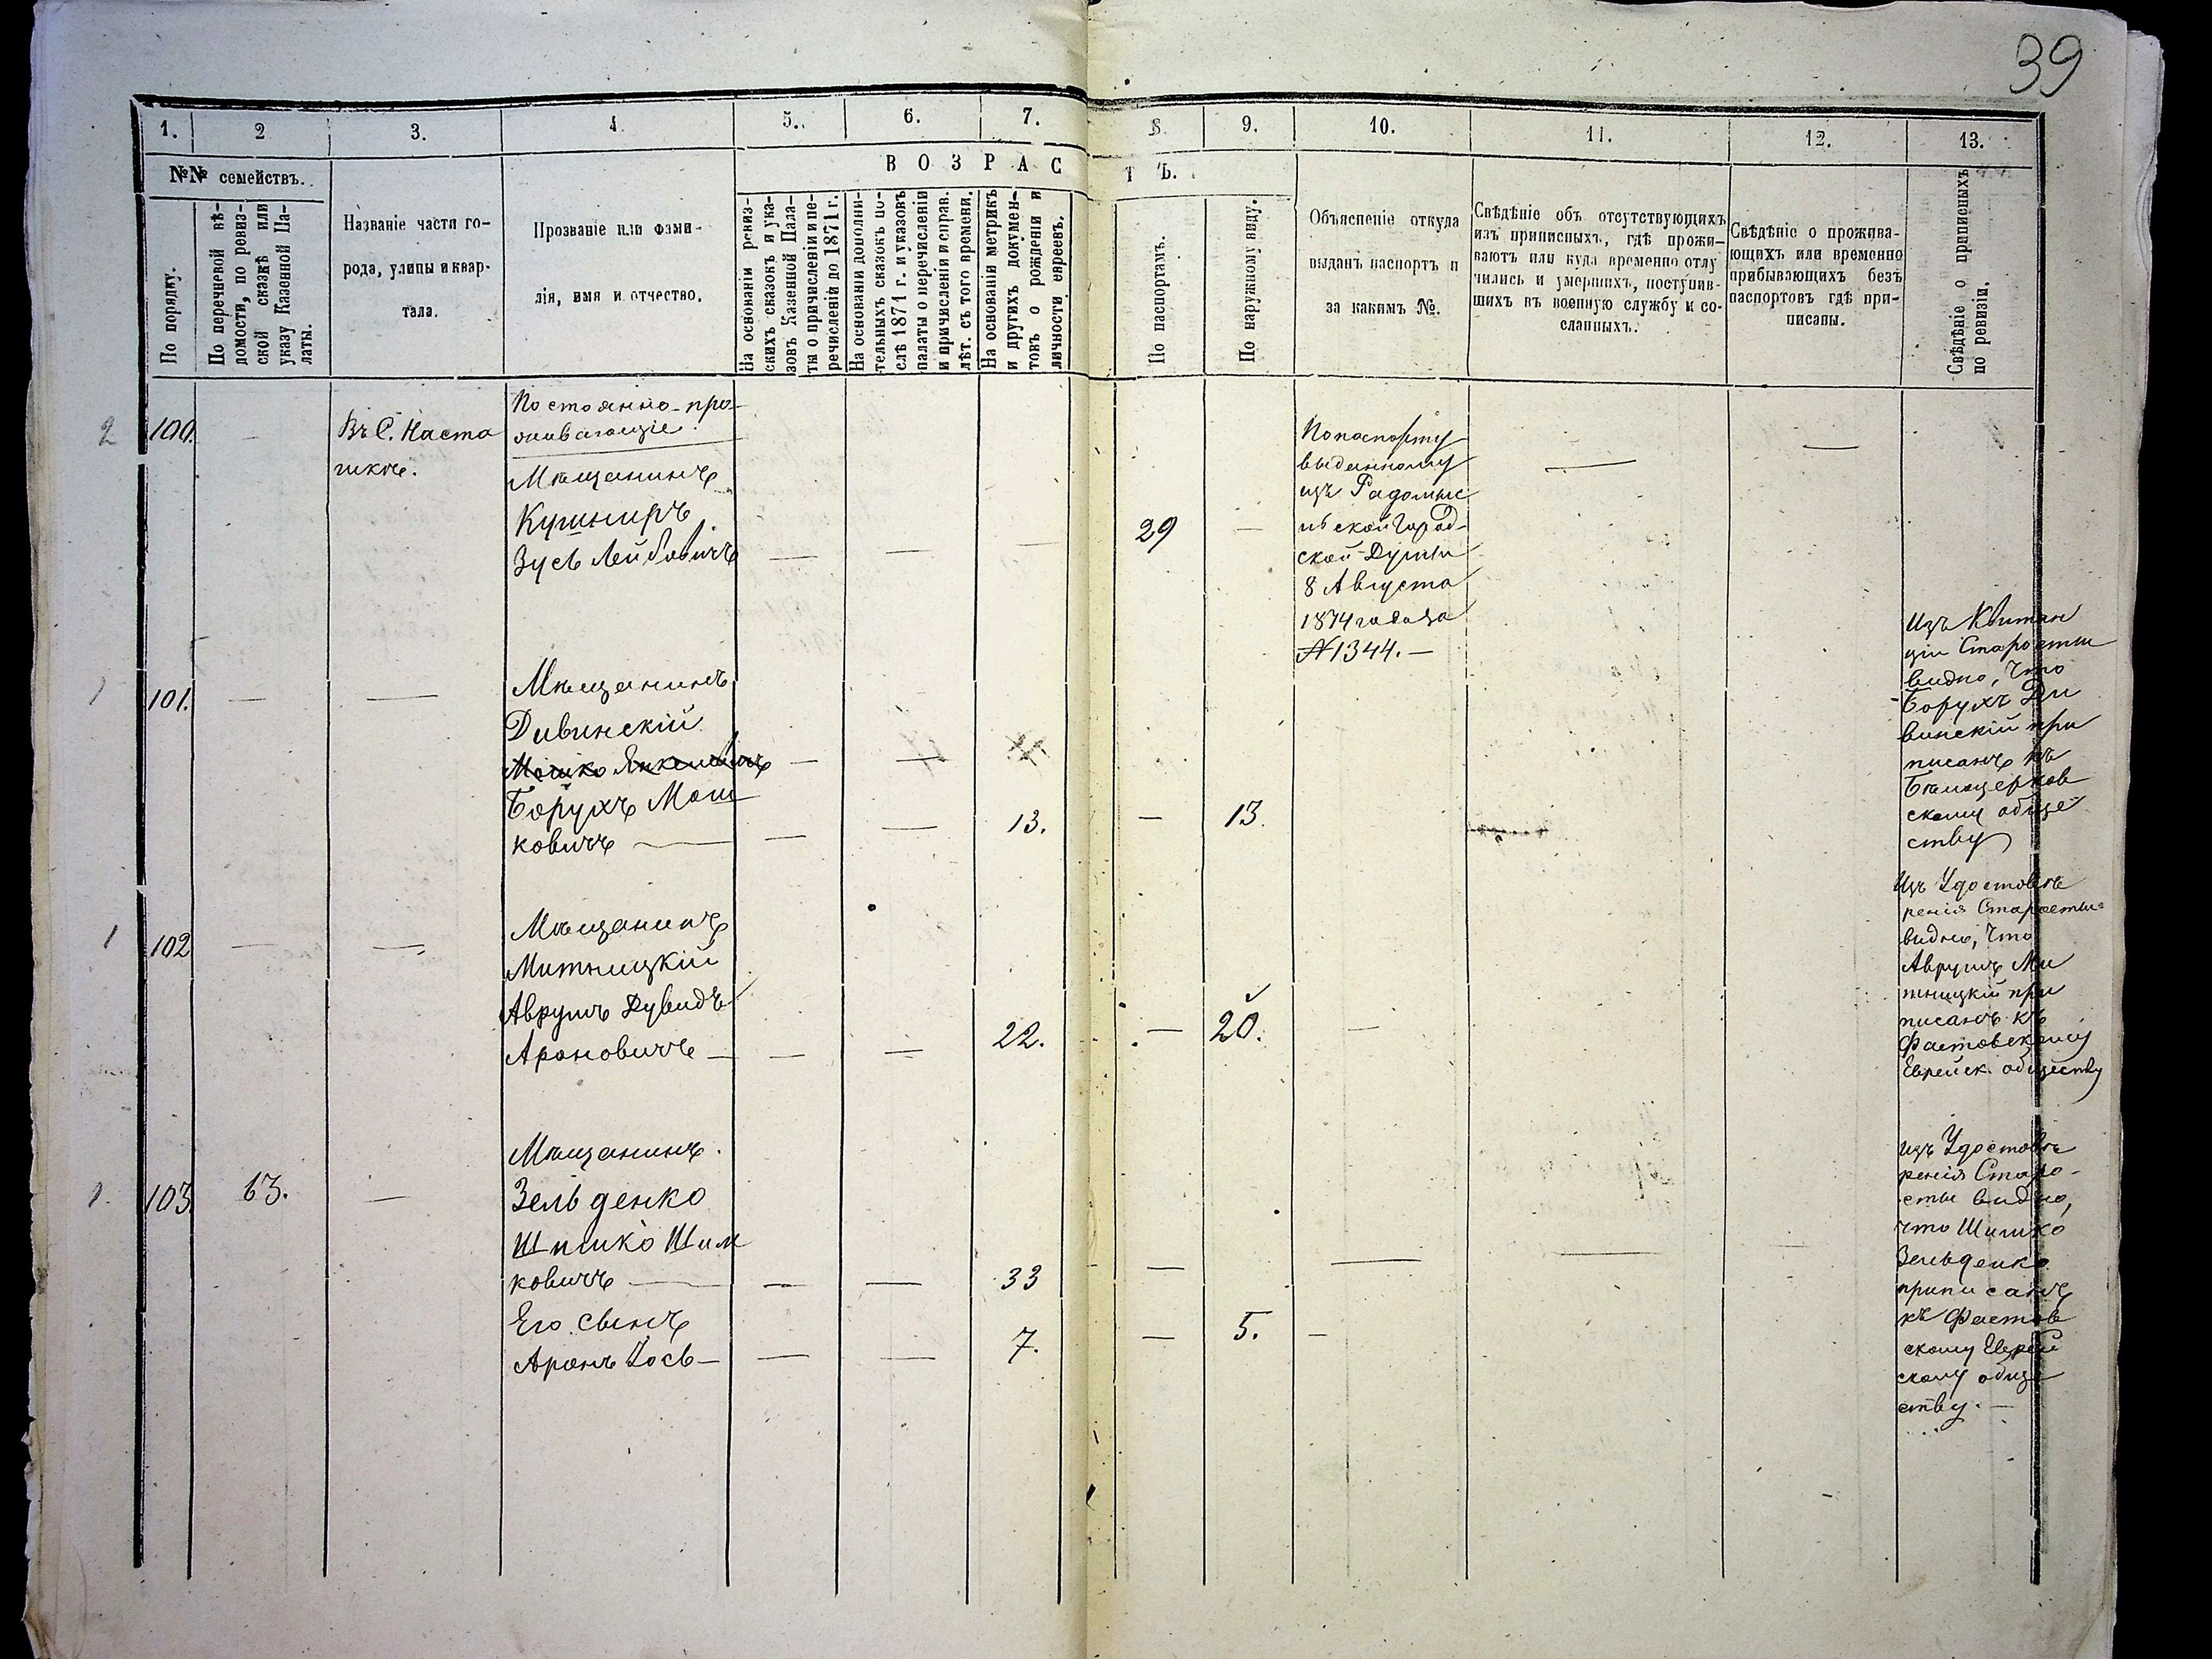 39
1.
2
3.
4.
5.
6.
7.
8.
9.
10.
11.
12.
13.
№№ семействъ.
По порядку.
По перечневой вѣ-
домости, по ревиз-
ской сказкѣ или
указу Казенной Па-
латы.
Названіе части го-
рода, улицы и квар-
тала.
Прозваніе или фами-
лія, имя и отчество.
ВОЗРАСТЪ.
На основаніи ревиз-
скихъ сказокъ и ука-
зовъ Казенной Пала-
ты о причисленіи и пе-
речисленіи до 1871 г.
На основаніи дополни-
тельныхъ сказокъ по-
слѣ 1871 г. и указовъ
палаты о перечисленіи
и причисленіи и справ.
лѣт. съ того времени.
На основаніи метрикъ
и другихъ докумен-
товъ о рожденіи и
личности евреевъ.
По паспортамъ.
По наружному виду.
Объясненіе откуда
выданъ паспортъ и
за какимъ №.
Свѣдѣніе объ отсутствующихъ
изъ приписныхъ, гдѣ прожи-
ваютъ или куда временно отлу
чились и умершихъ, поступив-
шихъ въ военную службу и со-
сланныхъ.
Свѣдѣніе о прожива-
ющихъ или временно
прибывающихъ безъ
паспортовъ гдѣ при-
писаны.
Свѣдѣніе о приписныхъ
по ревизіи.
2
100.
Въ С. Наста
шкѣ.
Постоянно-про-
живающіе.
Мѣщанинъ
Кушниръ
Зусь Лейбовичъ
29
По паспорту
выданному
изъ Радомыс
льской Город-
ской Думы
8 Августа
1874 года за
№ 1344.
1
101.
Мѣщанинъ
Дивинскій
Мошко Янкелевичъ
Борухъ Мош
ковичъ
13.
13.
Изъ Квитан
ціи Старосты
видно, что
Борухъ Ди
винскій при
писанъ къ
Бѣлоцерков
скому обще
ству
1
102
Мѣщанинъ
Митницкій
Аврумъ Дувидъ
Ароновичъ
22.
20.
Изъ Удостовѣ
ренія Старосты
видно, что
Аврумъ Ми
тницкій при
писанъ къ
Фастовскому
Еврейск. обществу
1.
103
63.
Мѣщанинъ.
Зельденко
Шимко Шим
ковичъ
33
Его сынъ
Аронъ Іось
7.
5.
Изъ Удостовѣ
ренія Старо-
сты видно,
что Шимко
Зельденко
приписанъ
къ Фастов
скому Еврей
скому обще
ству.